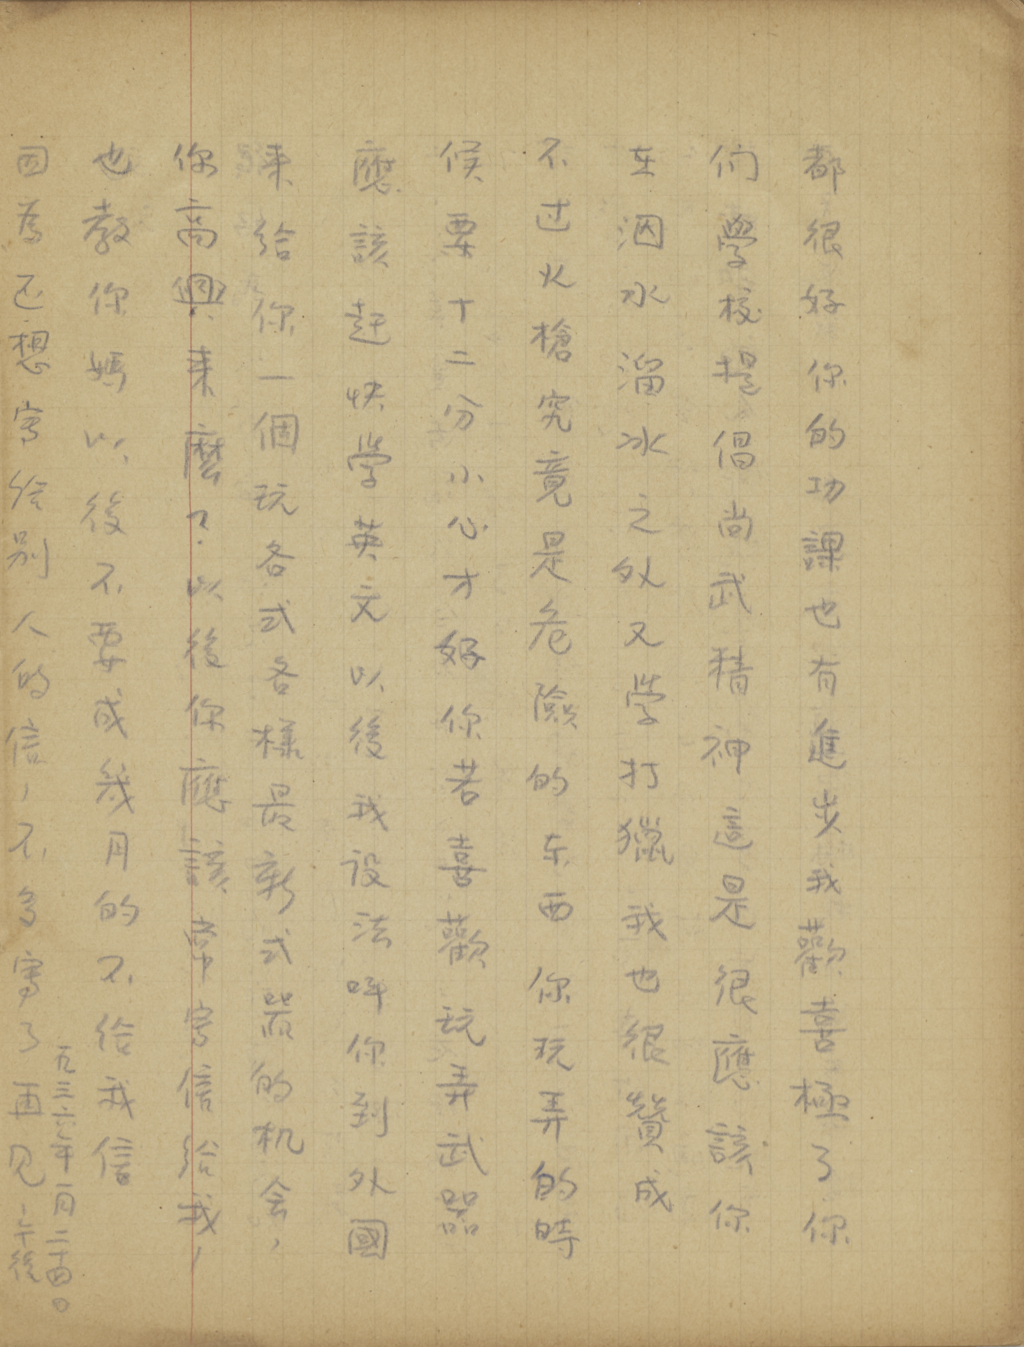 都很好你的功課也有進步我歡喜極了你
们學校提倡尚武精神這是很應該你
在泅水溜冰之外又學打獵我也很贊成
不过火槍究竟是危險的东西你玩弄的時
候要十二分小心才好你若喜歡玩弄武器
應該赶快學英文以後我设法呌你到外國
来给你一個玩各式各樣最新式器的机会，
你高興来麼？以後你應該常寫信给我，
也教你媽以後不要成幾月的不给我信
因為还想寫给别人的信，不多寫了再见！午後
一九三六年一月二十四日